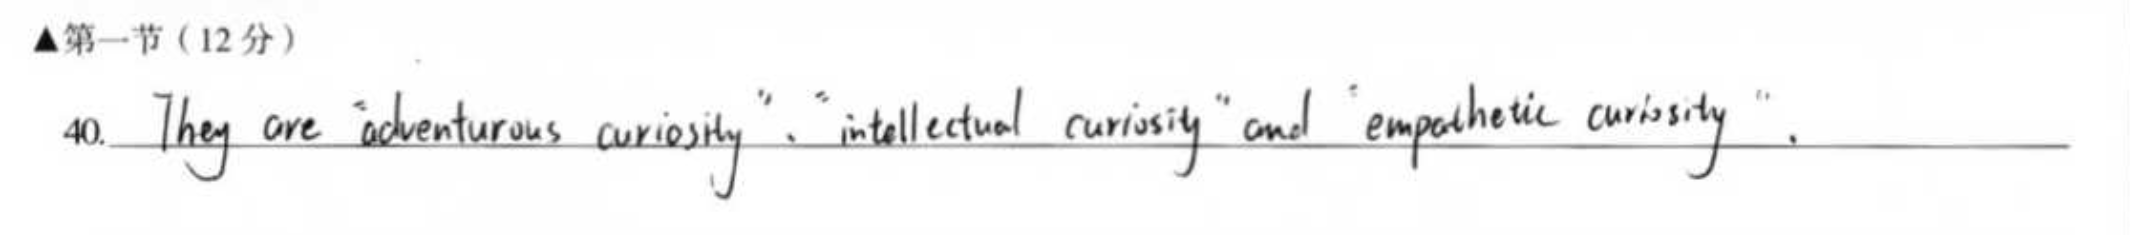 ▲第一节（12分）
40. They are "adventurous curiosity"、"intellectual curiosity" and "empathetic curiosity".